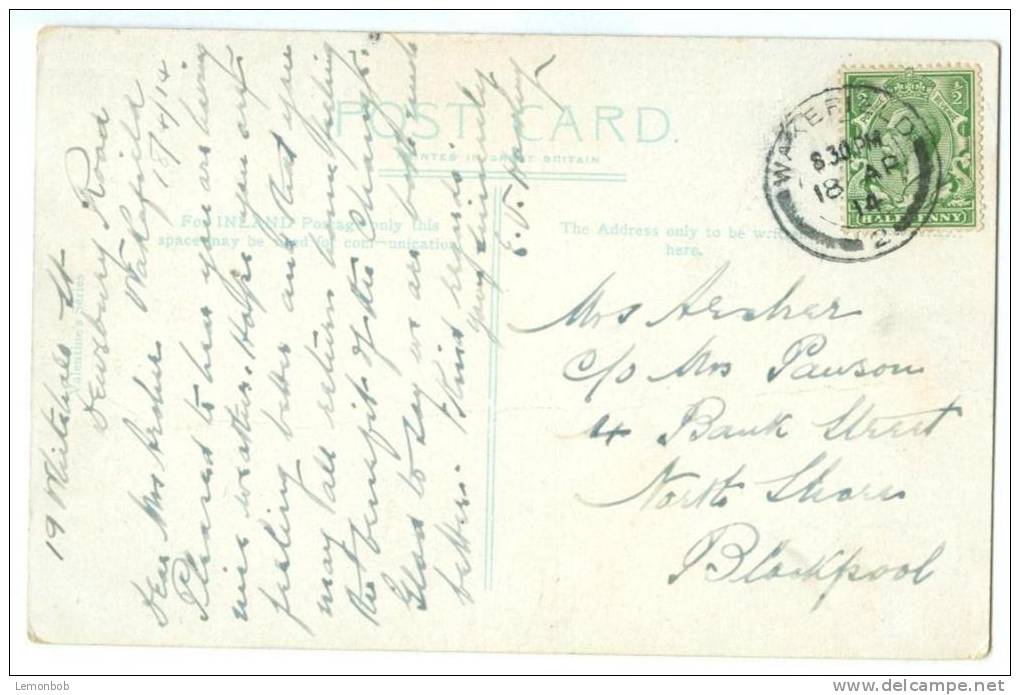 POST CARD.
PRINTED IN GREAT BRITAIN
For INLAND Postage only this
space may be used for communication
The Address only to be written
here.
Valentine's Series
WAKEFIELD
8.30 PM
18 AP
14
2
HALFPENNY
19 St
Dewsbury Road
Wakefield
18/4/14
Dear Mrs Archer
Pleased to hear you are having
nice weather. Hope you are
feeling better and that you
may all return home feeling
the benefit of the change.
Glad to say we are both much
better. Kind regards
yours sincerely
Mrs Archer
c/o Mrs Pawson
4 Bank Street
North Shore
Blackpool
Lemonbob
delcampe.net